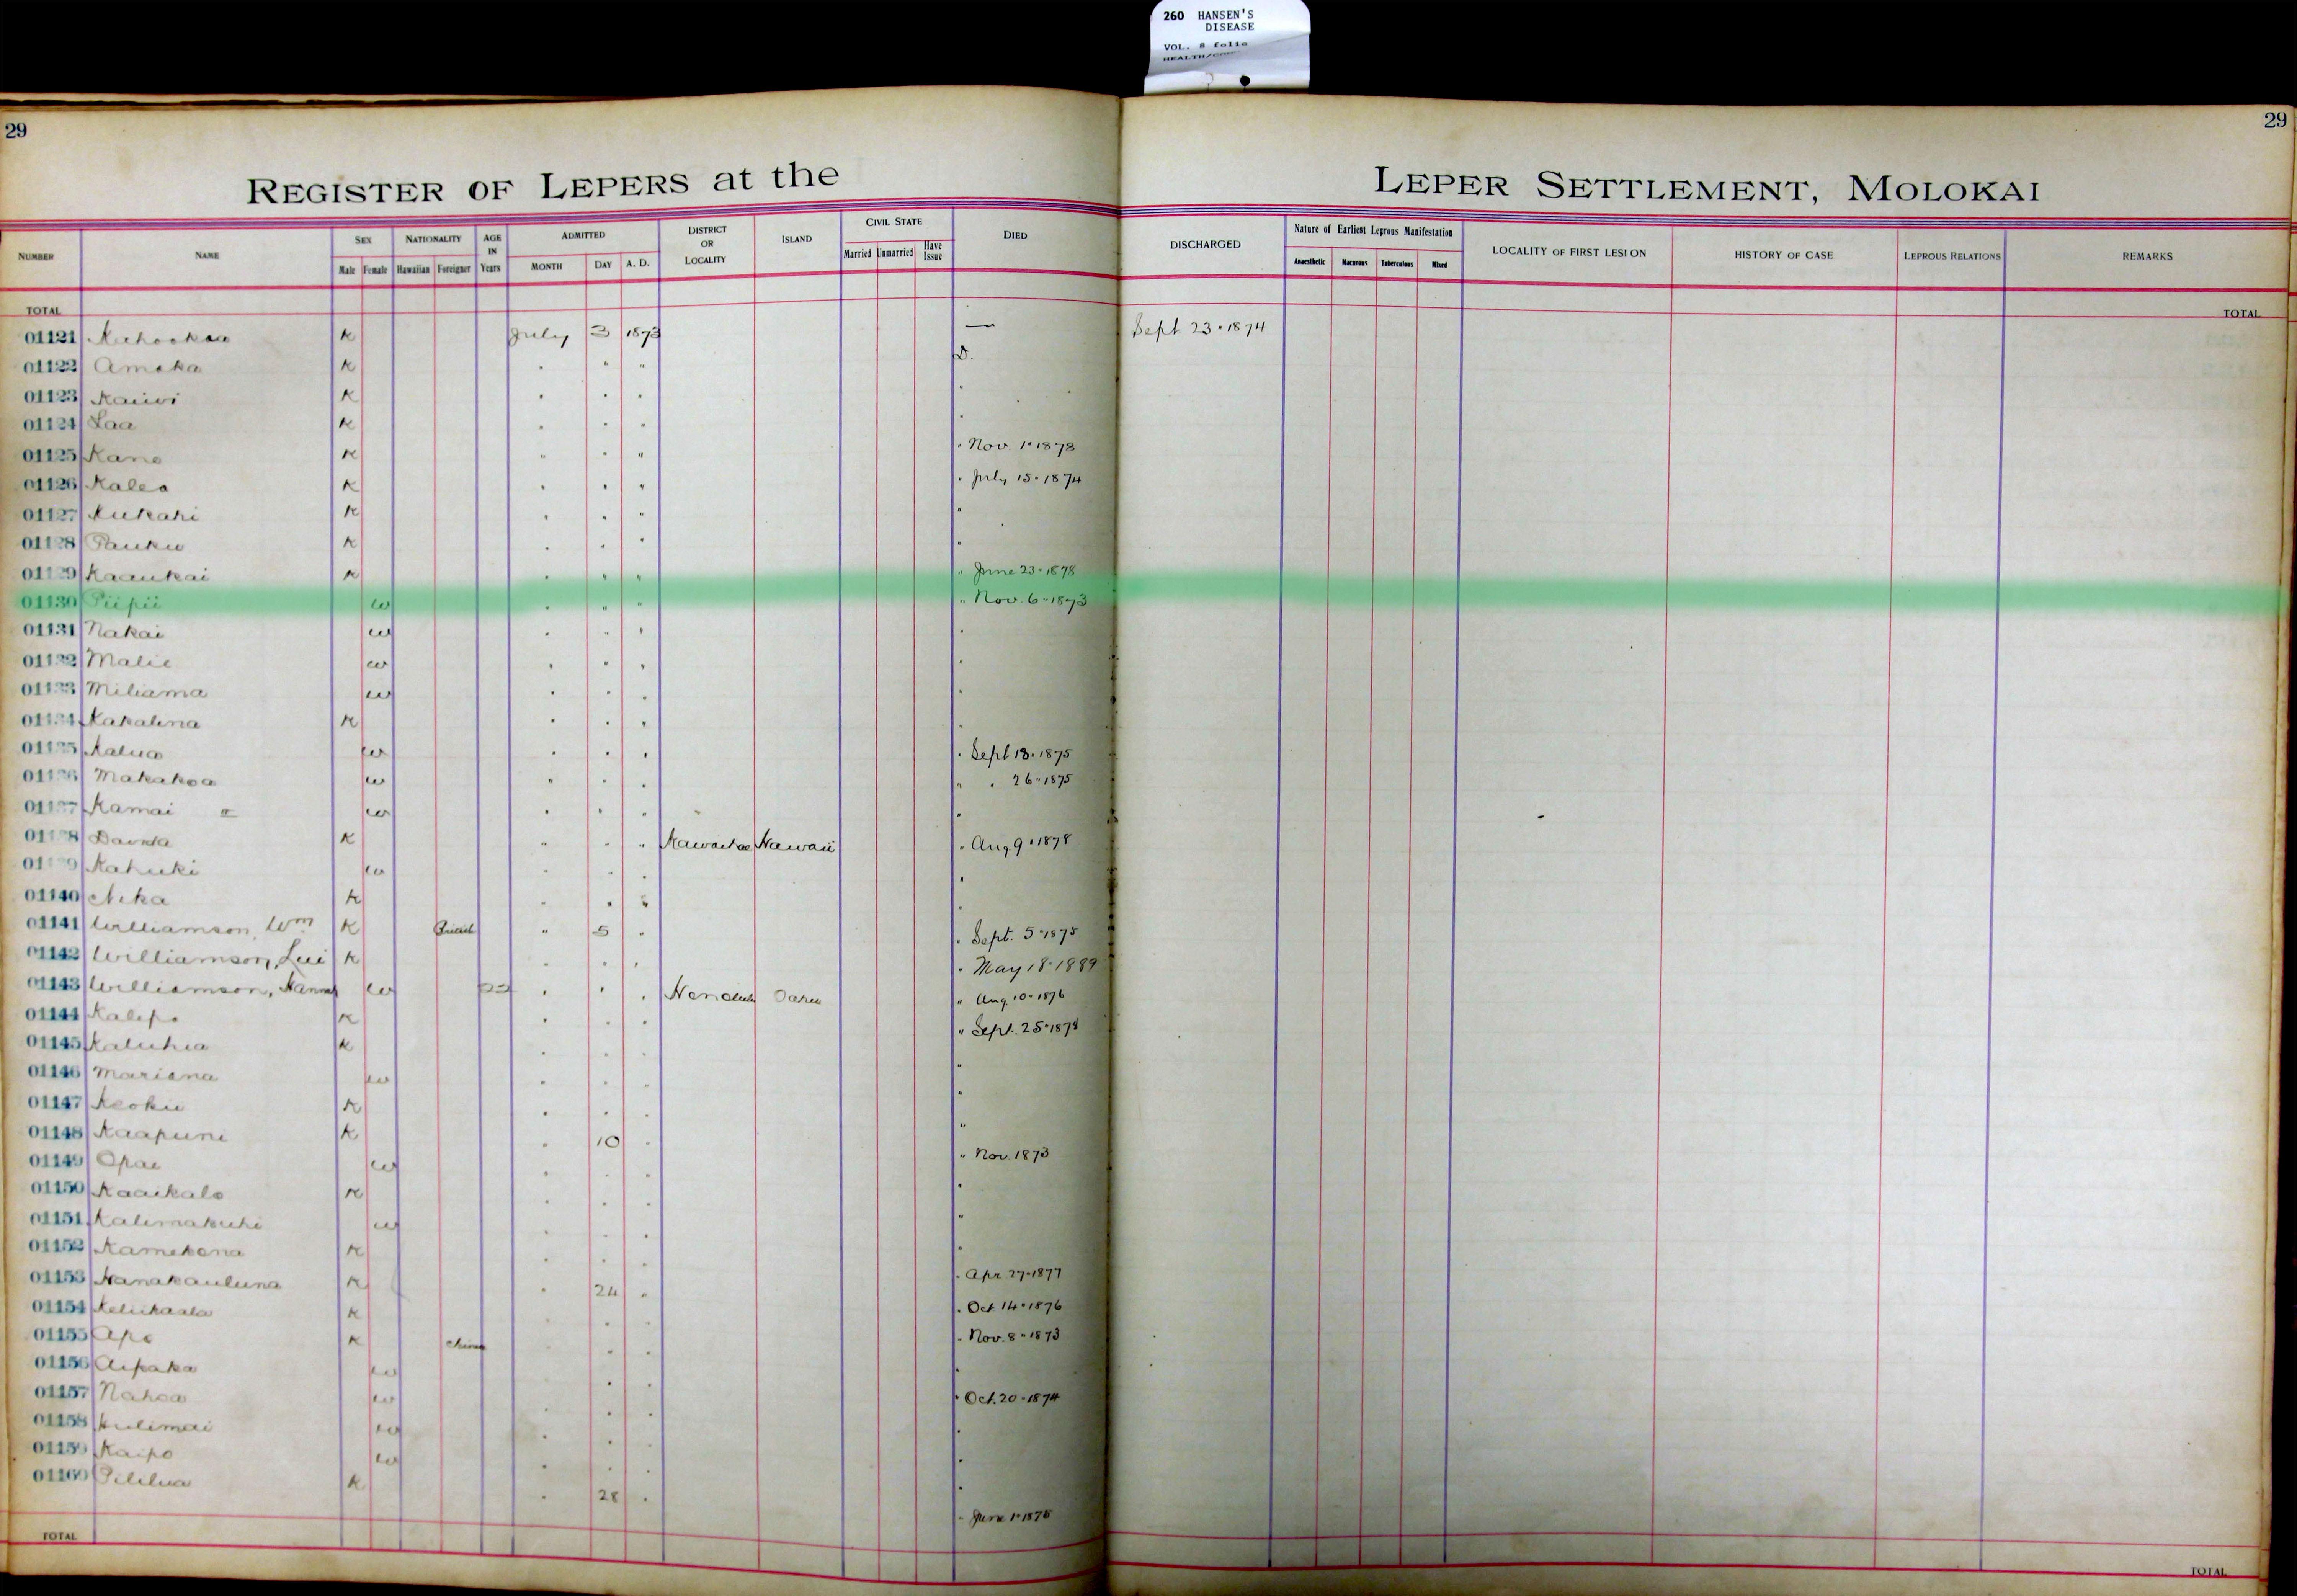 260 HANSEN'S
DISEASE
VOL. 8 folio
29 29
REGISTER OF LEPERS at the LEPER SETTLEMENT, MOLOKAI
NUMBER NAME SEX NATIONALITY AGE IN Years ADMITTED DISTRICT OR LOCALITY ISLAND CIVIL STATE DIED DISCHARGED Nature of Earliest Leprous Manifestation LOCALITY OF FIRST LESION HISTORY OF CASE LEPROUS RELATIONS REMARKS
Male Female Hawaiian Foreigner MONTH DAY A. D. Married Unmarried Have Issue Anaesthetic Macurous Tuberculous Mixed
TOTAL TOTAL
01121 K July 3 1873 — Sept 23 · 1874
01122 Amaka K " " " D.
01123 Kaiwi K " " " "
01124 Laa K " " " "
01125 Kane K " " " " Nov. 1 · 1878
01126 Kalea K " " " " July 15 · 1874
01127 Kukahi K " " " "
01128 Pauku K " " " "
01129 Kaaukai K " " " " June 23 · 1878
01130 Piipii w " " " " Nov. 6 · 1873
01131 Nakai w " " " "
01132 Malie w " " " "
01133 Miliama w " " " "
01134 Kakalina K " " " "
01135 Kalua w " " " " Sept 18 · 1875
01136 Makakoa w " " " " " 26 · 1875
01137 Kamai w " " " "
01138 K " " " Kawaihae Hawaii " Aug 9 · 1878
01139 Kahuki w " " " "
01140 Nika K " " " "
01141 Williamson, Wm K British " 5 " " Sept. 5 · 1875
01142 Williamson, Lui K " " " " May 18 · 1889
01143 Williamson, Hannah w " " " Honolulu Oahu " Aug. 10 · 1876
01144 Kalepo K " " " " Sept. 25 · 1878
01145 Kaluhia K " " " "
01146 Mariana w " " " "
01147 Keoku K " " " "
01148 Kaapuni K " 10 " "
01149 Opae w " " " " Nov. 1873
01150 Kaaikalo K " " " "
01151 Kalimakuhi w " " " "
01152 Kamekona K " " " "
01153 Nanakauluna K " 24 " " Apr 27 · 1877
01154 Keliikaala K " " " " Oct 14 · 1876
01155 Apo K China " " " " Nov. 8 · 1873
01156 Aipaka w " " " "
01157 Nahoa w " " " " Oct. 20 · 1874
01158 Kulimai w " " " "
01159 Kaipo w " " " "
01160 Pililua K " 28 " " June 1 · 1875
TOTAL TOTAL